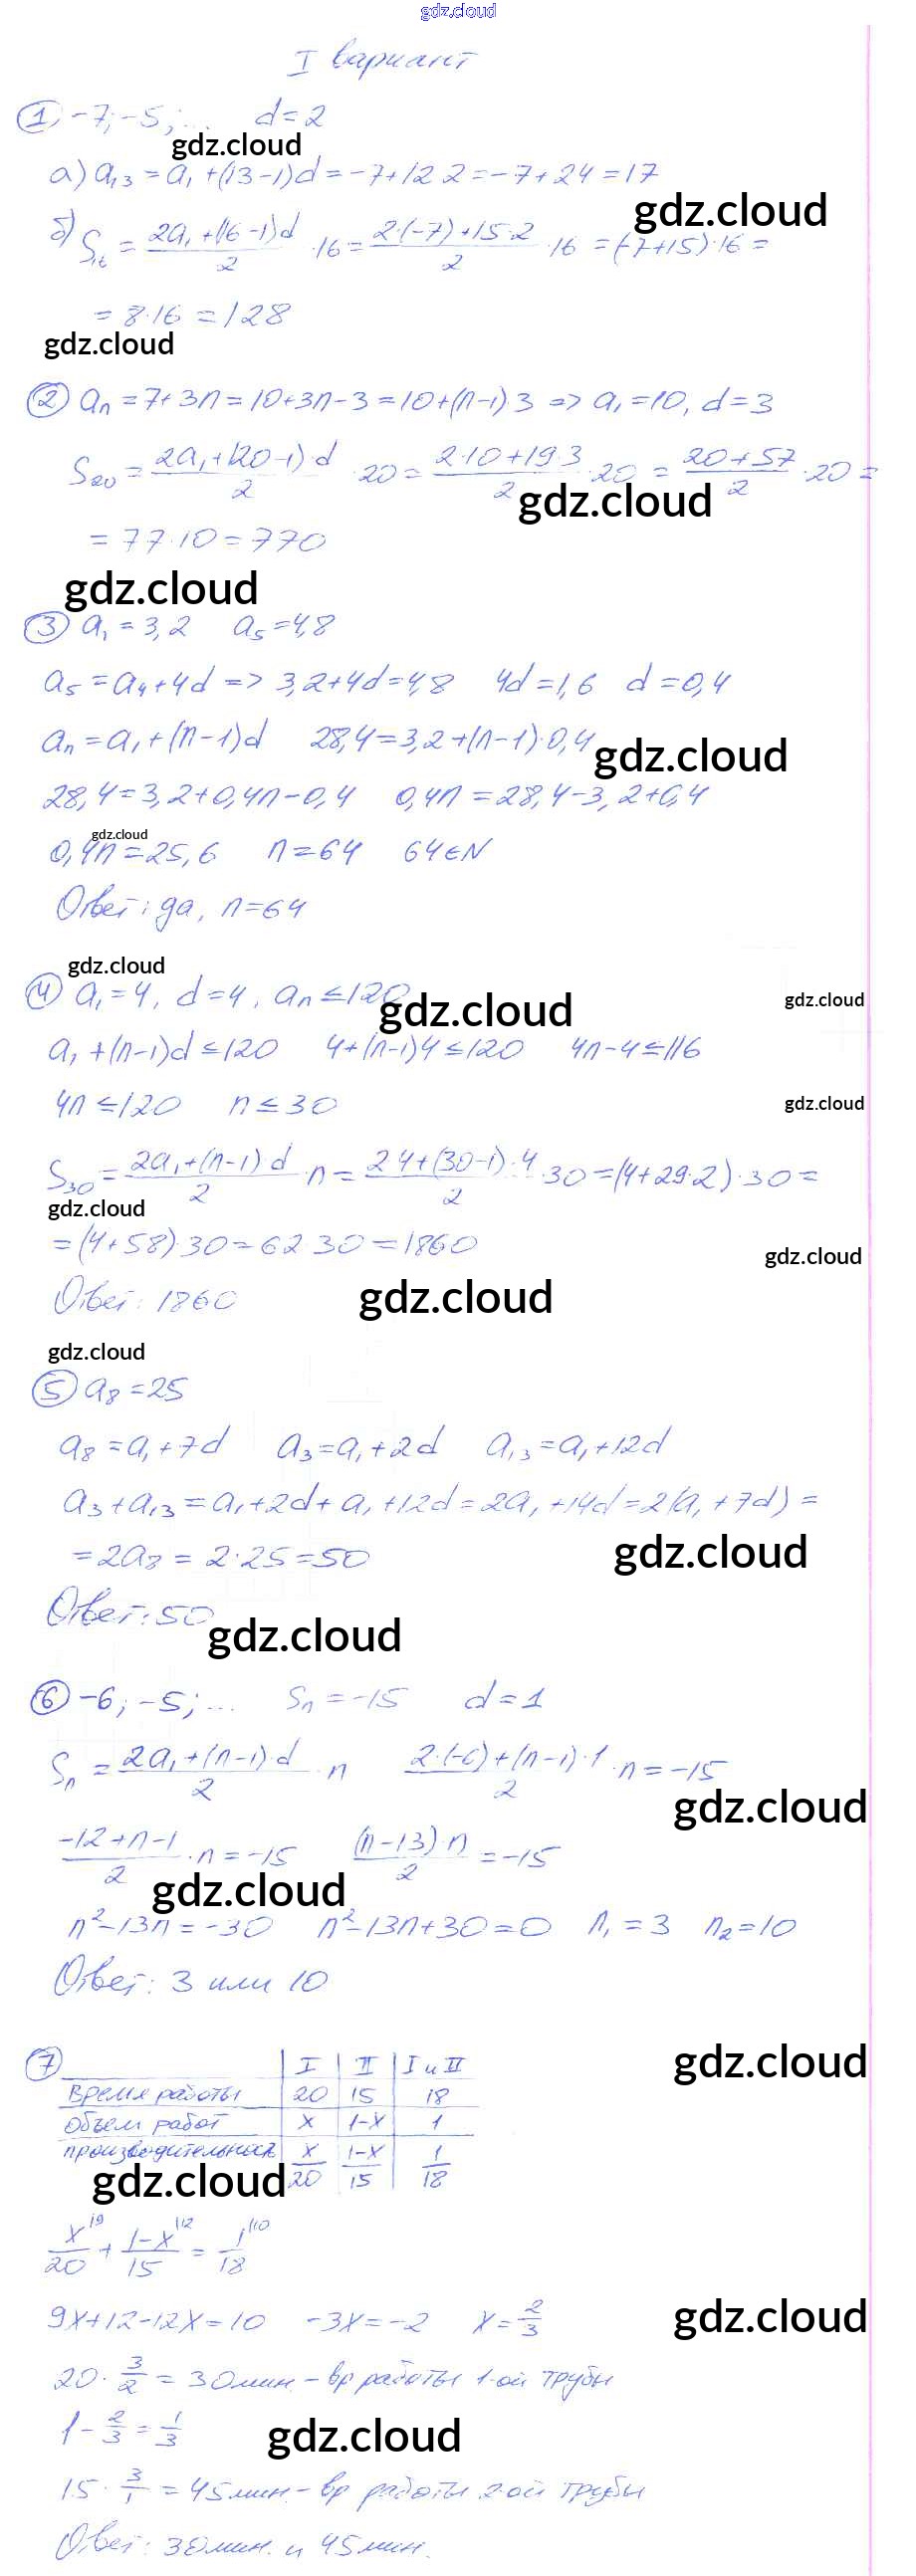 gdz.cloud
I вариант
① -7; -5; ... d=2
gdz.cloud
а) a₁₃ = a₁ + (13-1)d = -7+12·2 = -7+24 = 17
gdz.cloud
б) S₁₆ = (2a₁+(16-1)d)/2 · 16 = (2·(-7)+15·2)/2 · 16 = (-7+15)·16 =
= 8·16 = 128
gdz.cloud
② aₙ = 7+3n = 10+3n-3 = 10+(n-1)3 => a₁=10, d=3
S₂₀ = (2a₁+(20-1)·d)/2 · 20 = (2·10+19·3)/2 · 20 = (20+57)/2 · 20 =
gdz.cloud
= 77·10 = 770
gdz.cloud
③ a₁ = 3,2 a₅ = 4,8
a₅ = a₄+4d => 3,2+4d=4,8 4d=1,6 d=0,4
aₙ = a₁+(n-1)d 28,4=3,2+(n-1)·0,4
gdz.cloud
28,4=3,2+0,4n-0,4 0,4n=28,4-3,2+0,4
gdz.cloud
0,4n=25,6 n=64 64∈N
Ответ: да, n=64
gdz.cloud
④ a₁=4, d=4, aₙ≤120
gdz.cloud
gdz.cloud
a₁+(n-1)d≤120 4+(n-1)4≤120 4n-4≤116
4n≤120 n≤30
gdz.cloud
S₃₀ = (2a₁+(n-1)d)/2 · n = (2·4+(30-1)·4)/2 · 30 = (4+29·2)·30 =
gdz.cloud
= (4+58)·30 = 62·30 = 1860
gdz.cloud
Ответ: 1860
gdz.cloud
gdz.cloud
⑤ a₈=25
a₈=a₁+7d a₃=a₁+2d a₁₃=a₁+12d
a₃+a₁₃=a₁+2d+a₁+12d=2a₁+14d=2(a₁+7d)=
= 2a₈ = 2·25=50
gdz.cloud
Ответ: 50
gdz.cloud
⑥ -6; -5; ... Sₙ=-15 d=1
Sₙ = (2a₁+(n-1)·d)/2 · n (2·(-6)+(n-1)·1)/2 · n = -15
gdz.cloud
(-12+n-1)/2 · n = -15 ((n-13)·n)/2 = -15
gdz.cloud
n²-13n=-30 n²-13n+30=0 n₁=3 n₂=10
Ответ: 3 или 10
gdz.cloud
⑦ I II I и II
время работы 20 15 18
объем работ x 1-x 1
производительность x/20 (1-x)/15 1/18
gdz.cloud
x/20 |9 + (1-x)/15 |12 = 1/18 |10
gdz.cloud
9x+12-12x=10 -3x=-2 x=2/3
20·3/2=30мин.-вр работы 1-ой трубы
1-2/3=1/3
gdz.cloud
15·3/1=45мин.-вр работы 2-ой трубы
Ответ: 30мин. и 45мин.